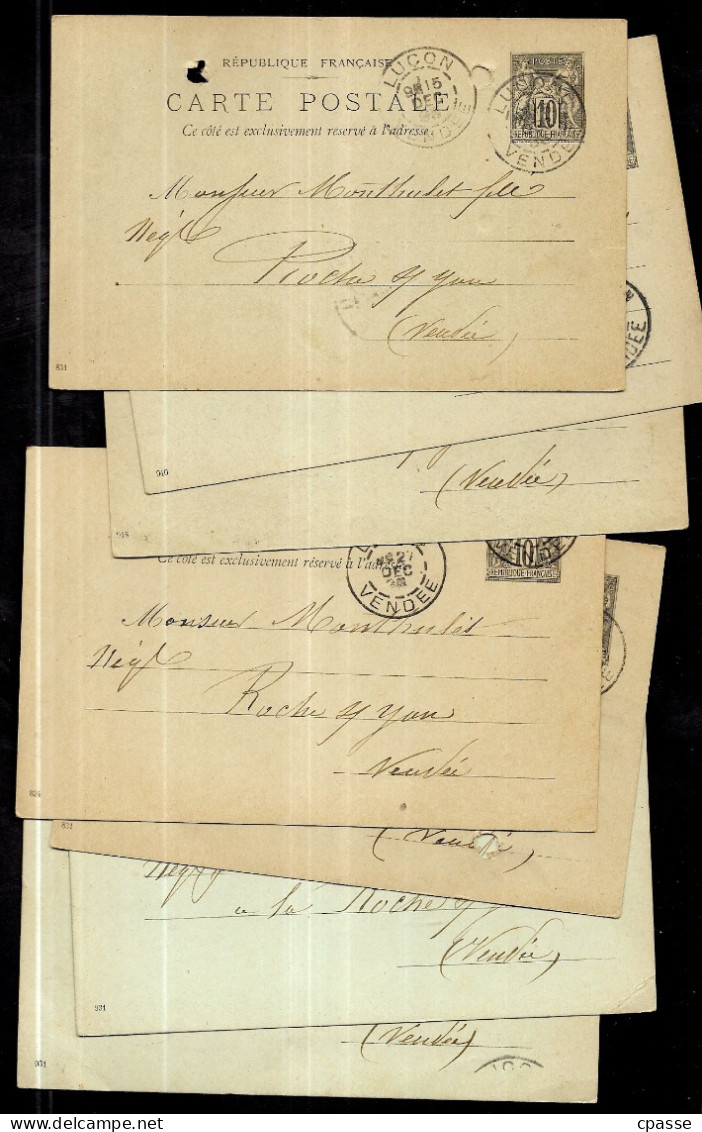 RÉPUBLIQUE FRANÇAISE
CARTE POSTALE
Ce côté est exclusivement réservé à l'adresse.
LUÇON
15
DEC
VENDEE
POSTES
10
REPUBLIQUE FRANÇAISE
VENDEE
Monsieur Monthulet fils
Négt
Roche s/ yon
(Vendée)
831
940
(Vendée)
Ce côté est exclusivement réservé à l'adresse
27
DEC
VENDEE
10
REPUBLIQUE FRANÇAISE
Monsieur Monthulet
Négt
Roche s/ yon
Vendée
831
(Vendée)
Négt
a la Roche s/
(Vendée)
931
(Vendée)
931
cpasse